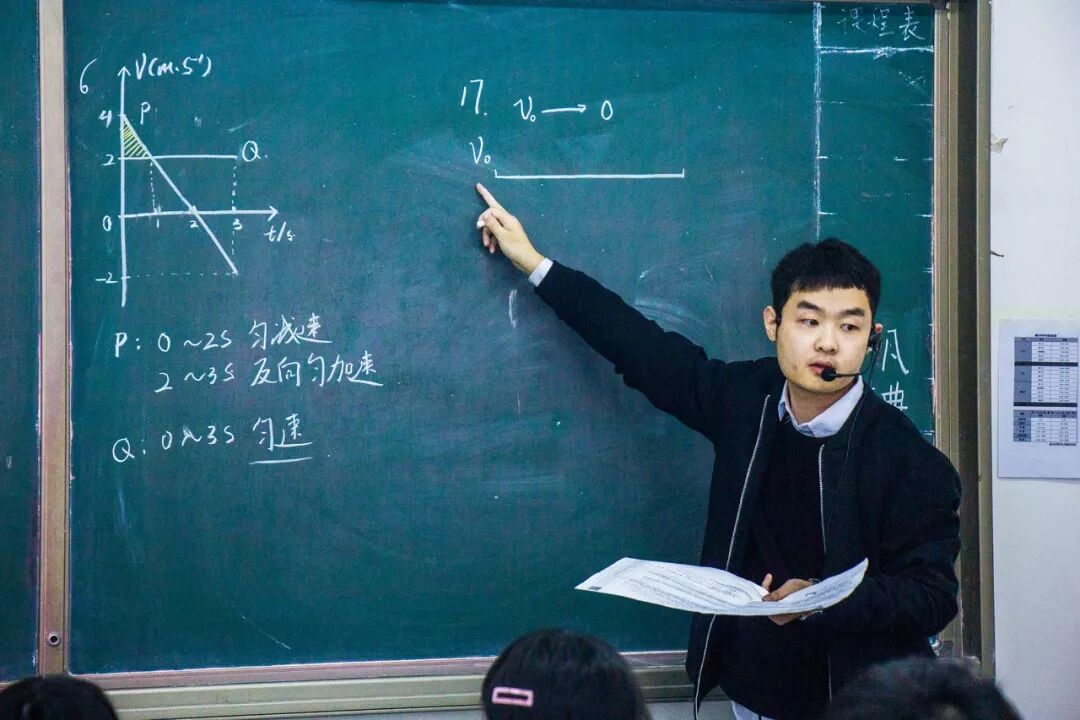 6
V(m·s⁻¹)
4
P
2
Q.
0
1 2 3
t/s
-2
P: 0~2s 匀减速
2~3s 反向匀加速
Q: 0~3s 匀速
17. V₀ → 0
V₀
课程表
凡